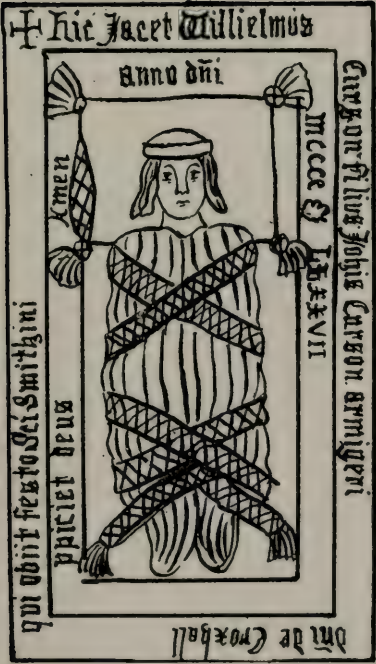 ✠ Hic Jacet Willielmus
Curson filius Johis Curson armigeri
dñi de Croxhall
qui obiit festo Sci Smithini
anno dñi
mcccc & LXXXVII
ppiciet deus
Amen